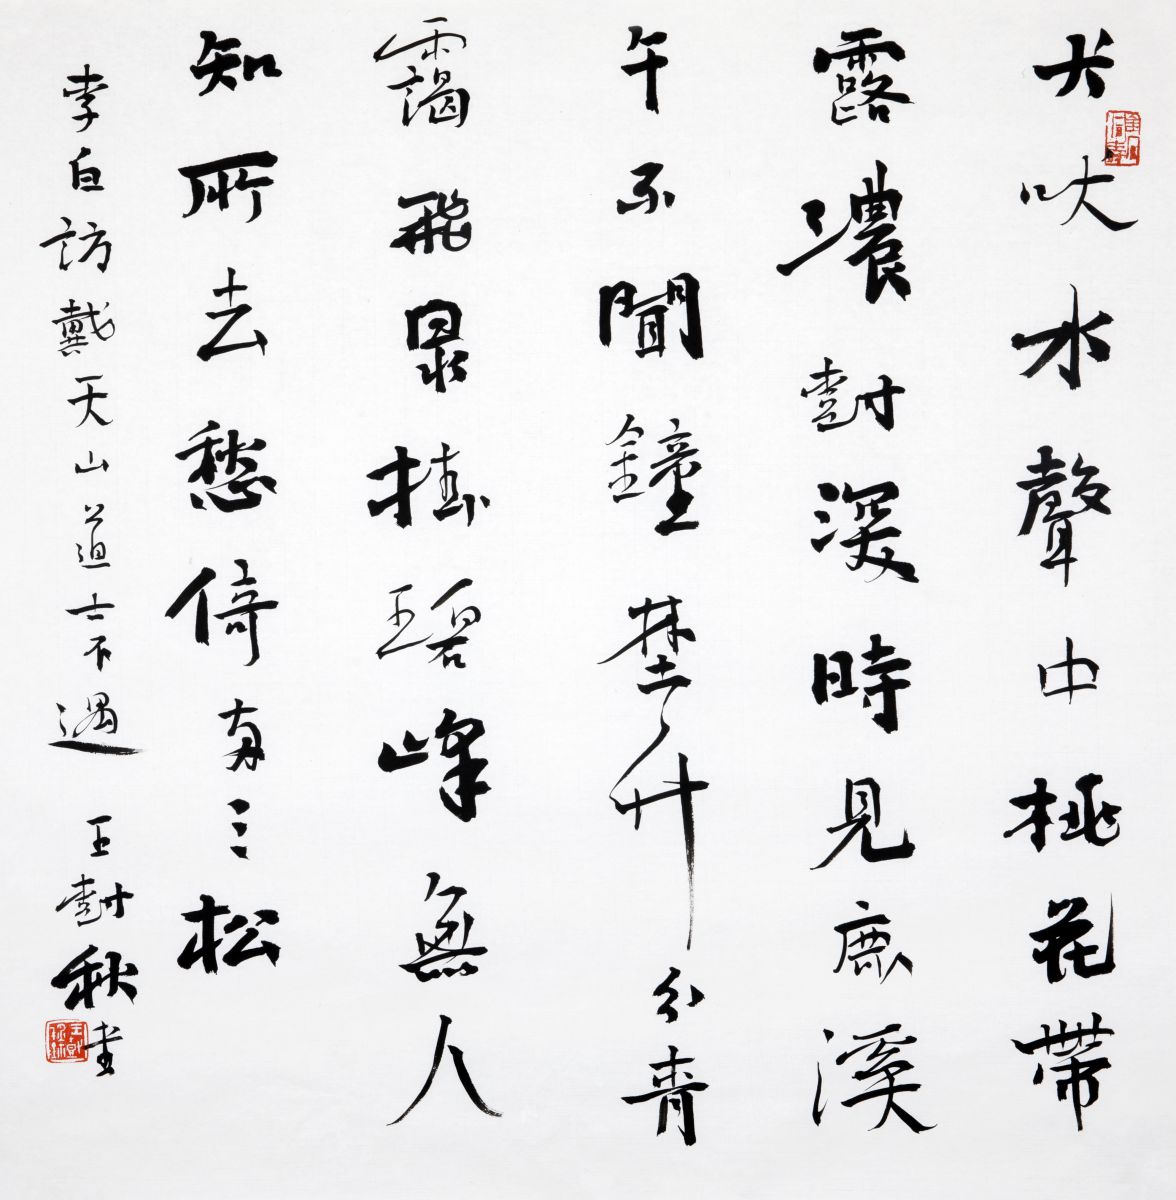 犬吠水聲中桃花帶
露濃樹深時見鹿溪
午不聞鐘埜竹分青
靄飛泉掛碧峰無人
知所去愁倚兩三松
李白訪戴天山道士不遇 王樹秋書